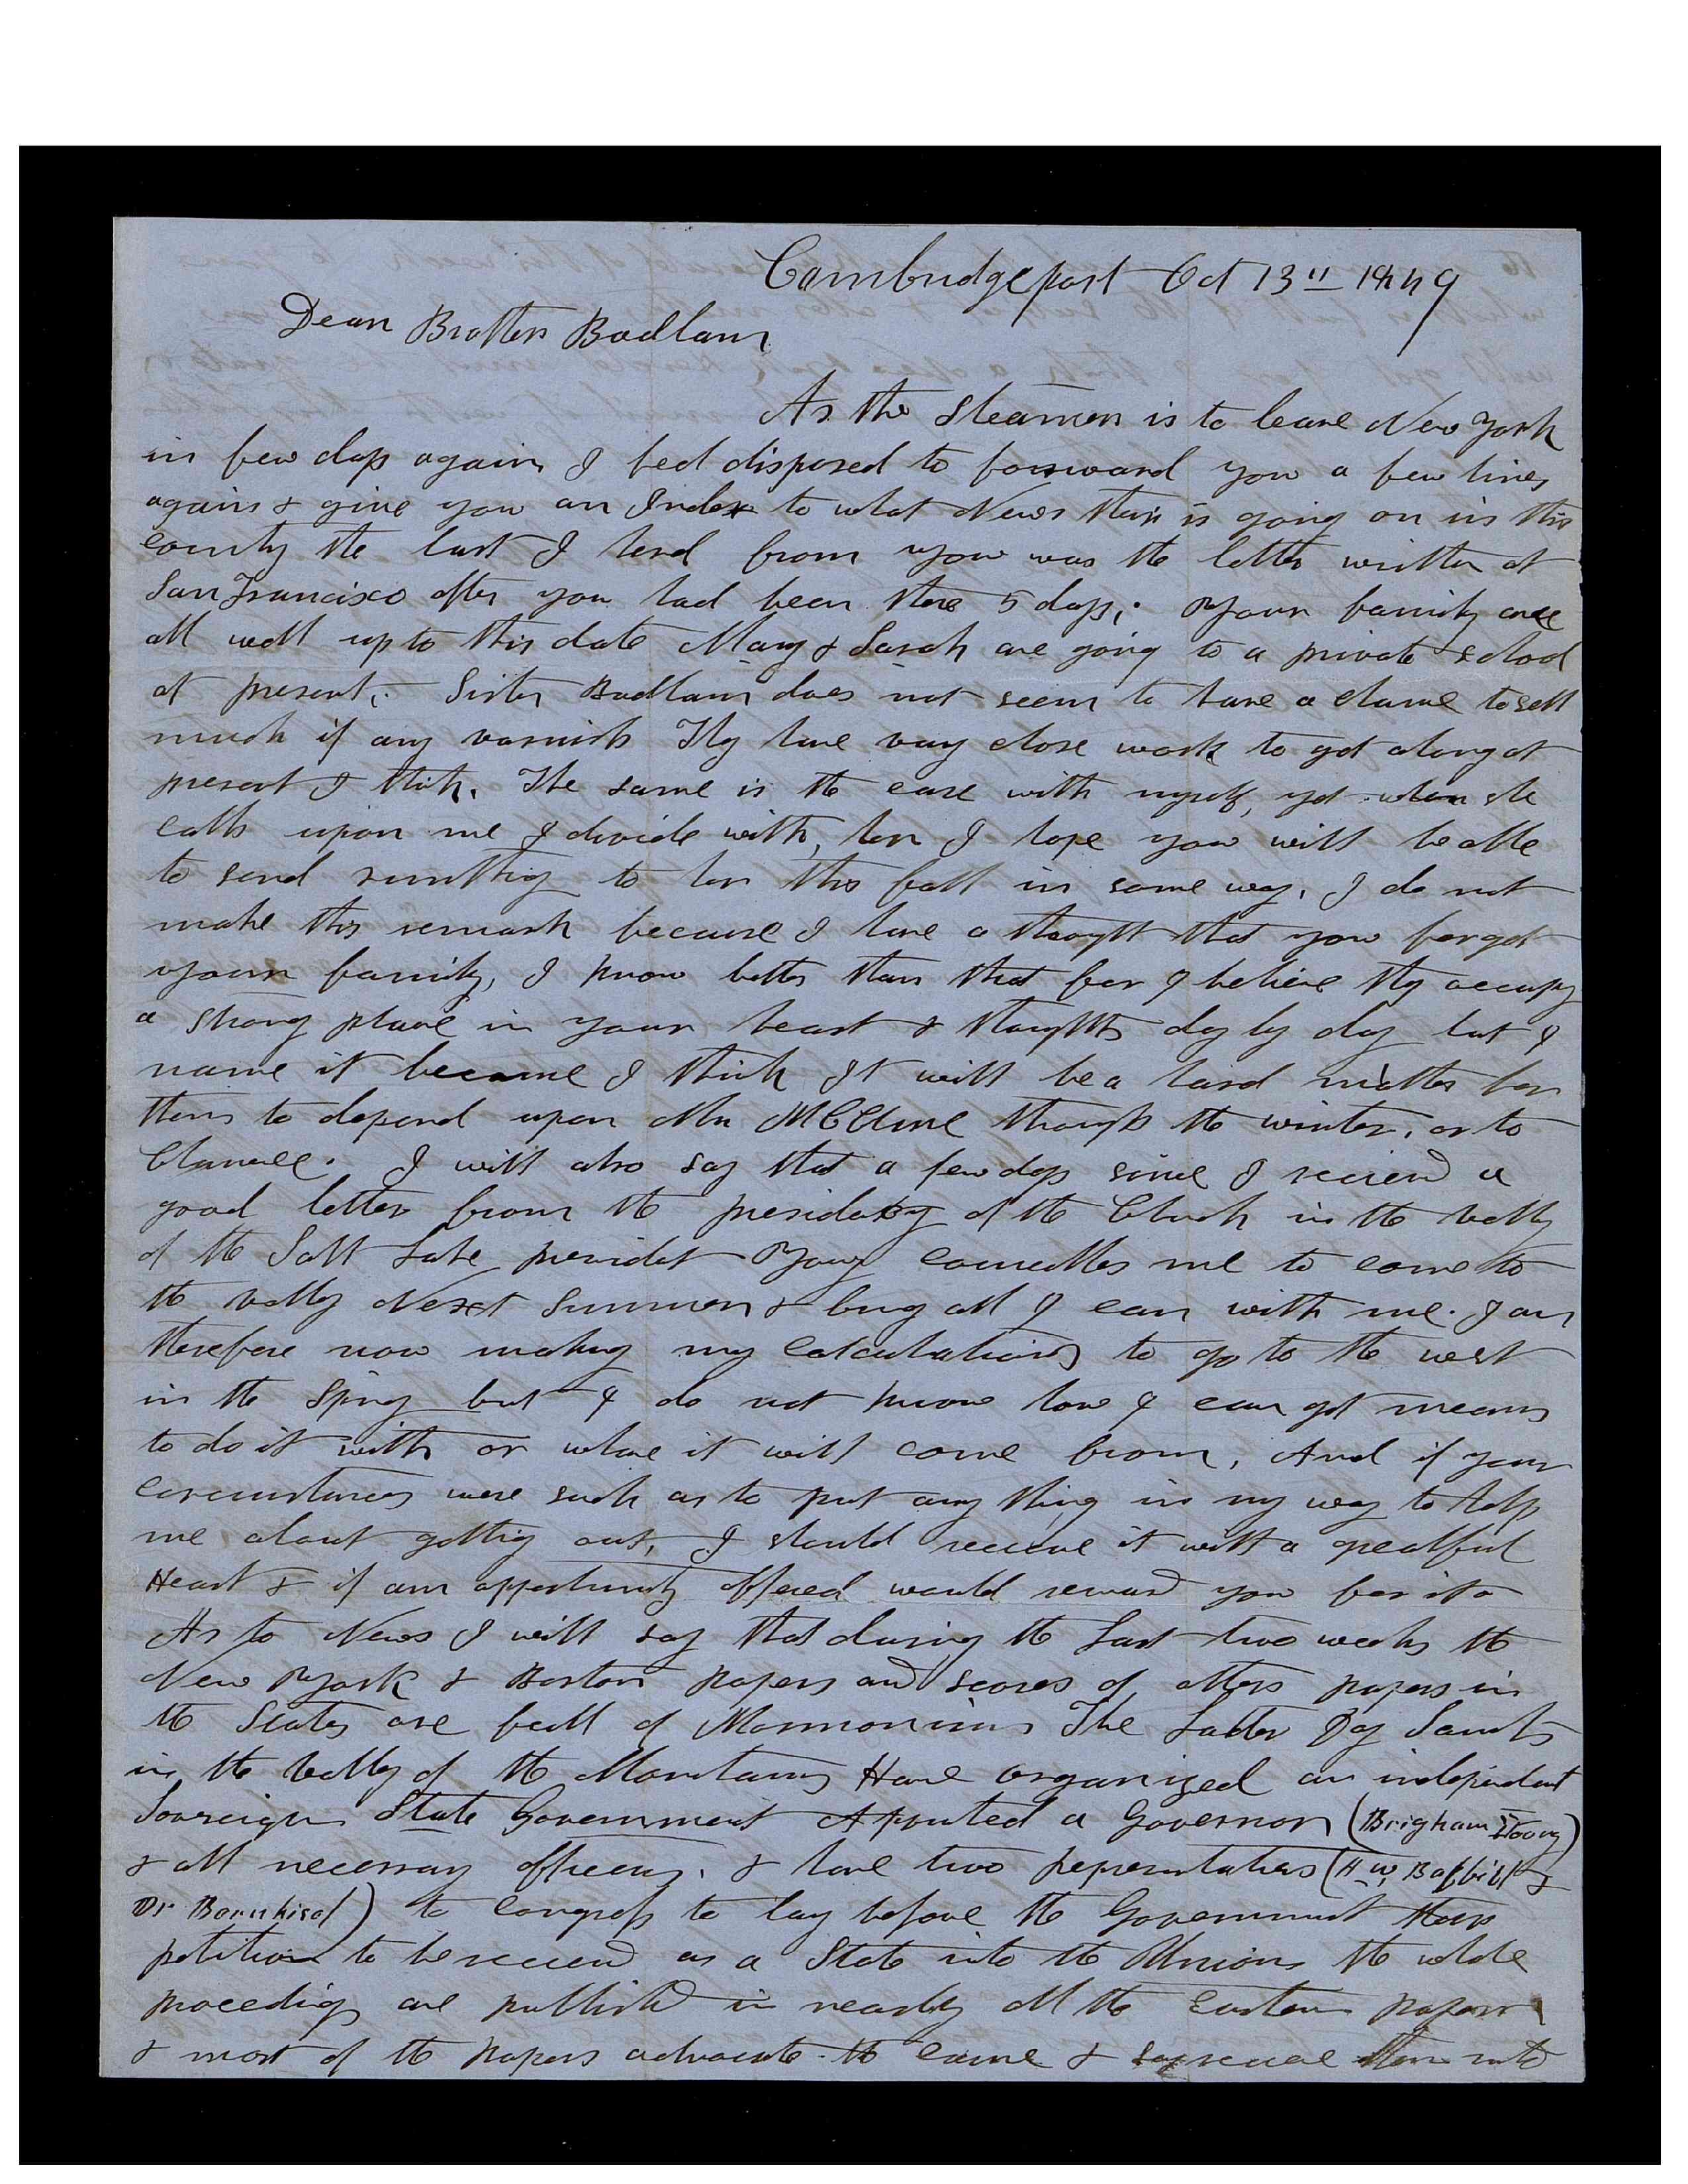 Cambridgeport Oct 13" 1849
Dear Brother Badlam
As the Steamer is to leave New York
in few days again I feel disposed to forward you a few lines
again & give you an Index to what News thair is going on in this
county the last I herd from you was the letter written at
San Francisco after you had been there 5 days; Your family are
all well up to this date Mary & Sarah are going to a private school
at present. Sister Badlam does not seem to have a chance to sell
much if any varnish They have vary close work to get along at
present I think. The same is the case with myself, yet when she
calls upon me I divide with her I hope you will be able
to send sumthing to her this fall in some way. I do not
make this remark because I have a thought that you forget
your family, I know better than that for I believe they occupy
a strong place in your heart & thoughts day by day but I
name it because I think It will be a hard matter for
them to depend upon Mr McClure through the winter, or to
Chance. I will also say that a few days since I recieved a
good letter from the presidency of the Church in the valley
of the Salt Lake president Young councelles me to come to
the valley Next Summer & bring all I can with me. I am
therefore now making my calculations to go to the west
in the Spring but I do not know how I can get means
to do it with or whare it will come from, And if your
circumstances were such as to put any thing in my way to help
me about getting out, I should receive it with a greatful
Heart & if an oppertunity offered would reward you for it
As to News I will say that during the Last two weeks the
New York & Boston papers and scores of others papers in
the States are full of Mormonism The Latter Day Saints
in the Valley of the Mountains Have organized an independant
Sovreign State Government Appointed a Governor (Brigham Young)
& all necessary officers, & have two representatives (A W, Babbitt &
Dr Bernhisel) to Congress to lay before the Government their
petition to be recieved as a State into the Union the whole
proceedigs are published in nearly all the Eastern papers
& most of the papers advocate the cause & say receive them into